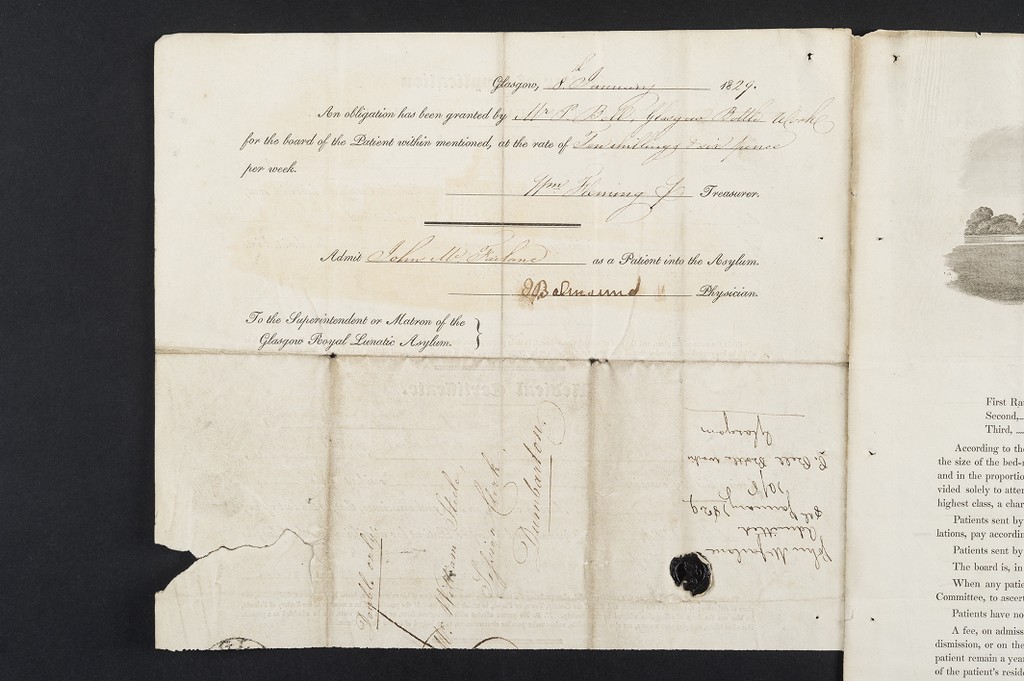 Glasgow, 8th January 1829.
An obligation has been granted by Mr P. Bell, Glasgow Bottle Works
for the board of the Patient within mentioned, at the rate of Ten shillings & six pence
per week.
Wm Fleming Treasurer.
Admit John Mc Farlane as a Patient into the Asylum.
Balmanno Physician.
To the Superintendent or Matron of the
Glasgow Royal Lunatic Asylum. }
Medical Certificate.
Double only.
Mr William Steele
Sheriff Clerk
Dumbarton.
John Mcfarlane
Admitted
8th January 1829
10/6
P. Bell Bottle works
Glasgow
First Ra
Second,
Third,
According to the
the size of the bed-r
and in the proportio
vided solely to atter
highest class, a char
Patients sent by
lations, pay accordin
Patients sent by
The board is, in
When any patie
Committee, to ascert
Patients have no
A fee, on admiss
dismission, or on the
patient remain a year
of the patient's reside